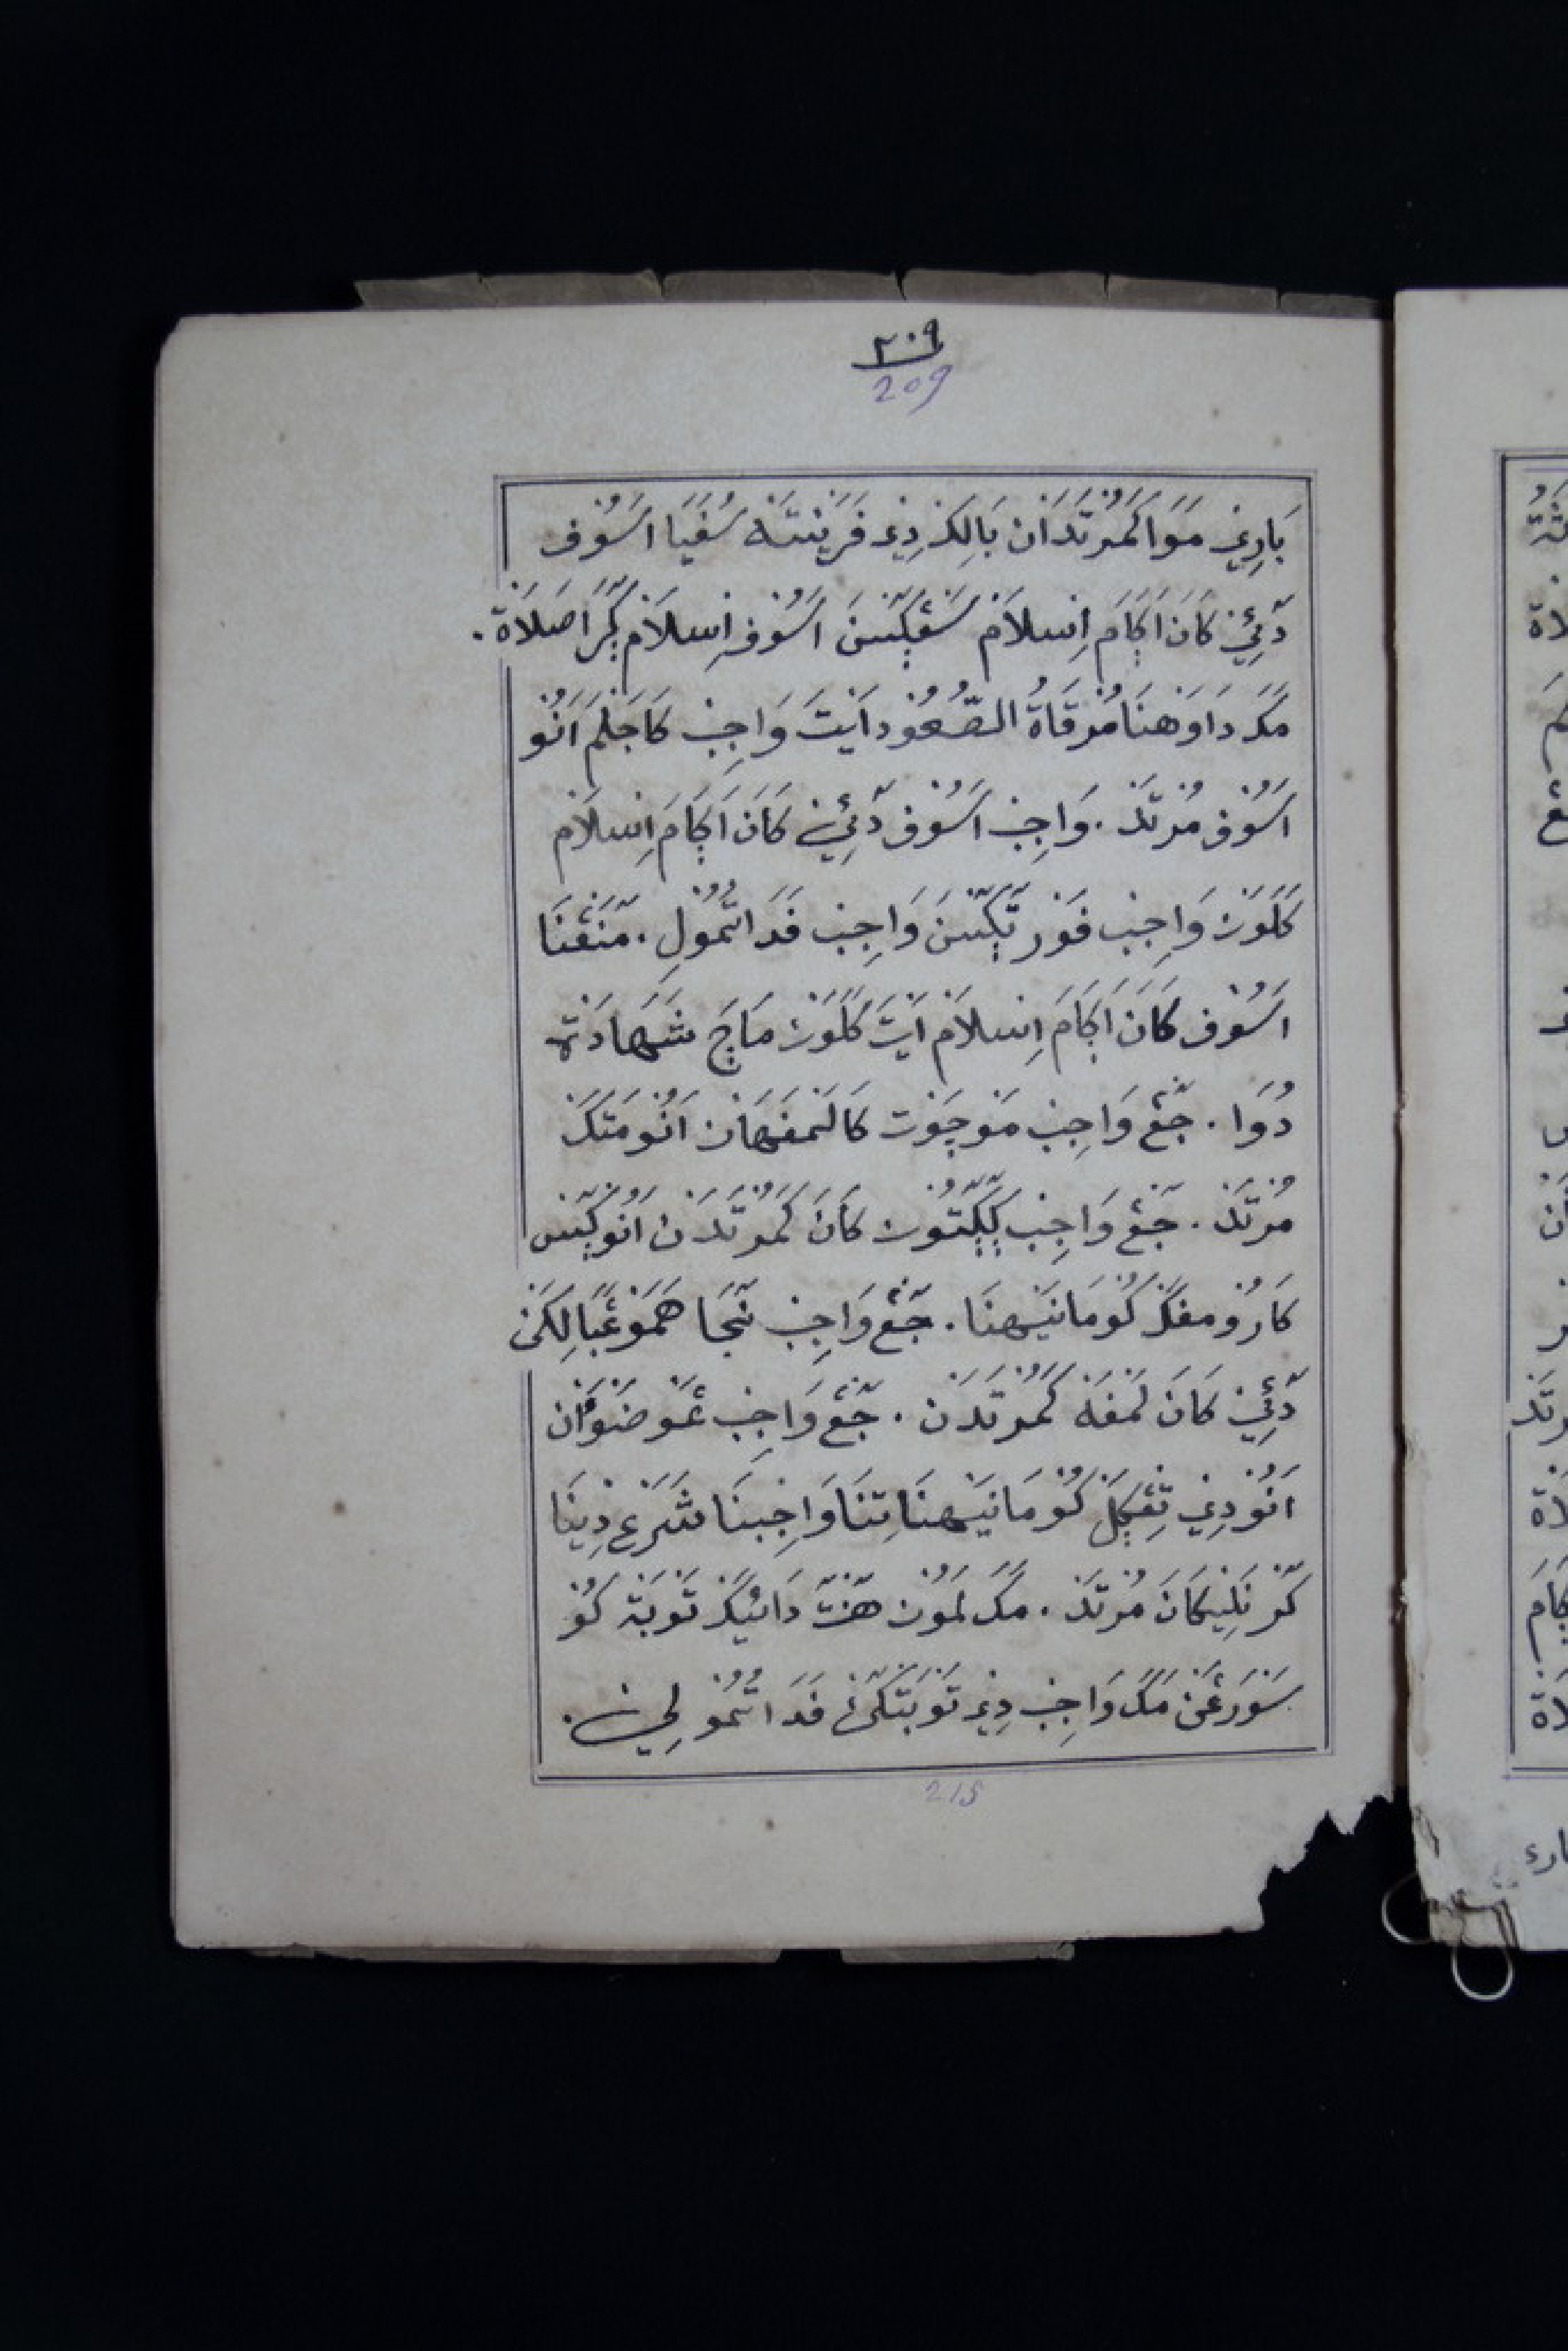 ٢٠٩
209
بَارِيْڠْ مَوَا كَمُرْتَدَانْ بَالِكَنْ دِيْ فَرَيْنْتَهْ سُفَيَا اَسُوْفْ
دَئِيْ كَانَ اَڮَامَ اِسْلَامْ سَڠْڮَسْنَ اَسُوْفْ اِسْلَامْ ڮَرَا صَلَاةْ.
مَكَ دَاوَهْنَا مُرْقَاةُ الصُّعُوْدْ اَيْتَ وَاجِبْ كَا جَلْمَ اَنُوْ
اَسُوْفْ مُرْتَدْ. وَاجِبْ اَسُوْفْ دَئِيْ كَانَ اَڮَامَ اِسْلَامْ
كَلَوَنْ وَاجِبْ فَوْرْ تَڮَسْنَ وَاجِبْ فَدَا اتْمُوْلِ. مَنَڠْنَا
اَسُوْفْ كَانَ اَڮَامَ اِسْلَامْ اَيْتَ كَلَوَنْ مَاچَ شَهَادَةْ
دُوَا. جَڠْ وَاجِبْ مَوْجَوْتْ كَالَمْفَهَانْ اَنُوْ مَتَكْ
مُرْتَدْ. جَڠْ وَاجِبْ ڮَڮَتُوْنْ كَانَ كَمُرْتَدَنْ اَنُوْ ڮَسْ
كَارُوْمْفَكْ كُوْ مَانَيْهْنَا. جَڠْ وَاجِبْ نَجَا هَمَوْ ڠَبَالِكَنْ
دَئِيْ كَانَ لَمْفَهْ كَمُرْتَدَنْ. جَڠْ وَاجِبْ ڠَوْضَوْانْ
اَنُوْ دِيْ تِڠْڮَلْ كُوْ مَانَيْهْنَا تِنَا وَاجِبْنَا شَرَعْ دِيْنَا
كَرْ نَلِيْكَانَ مُرْتَدْ. مَكَ لَمُوْنْ هَنْتَ دَائَيْكَنْ تَوْبَةْ كُوْ
سَوَرَڠَنْ مَكَ وَاجِبْ دِيْ تَوْبَتَكَنْ فَدَا اتْمُوْلِيْ.
215